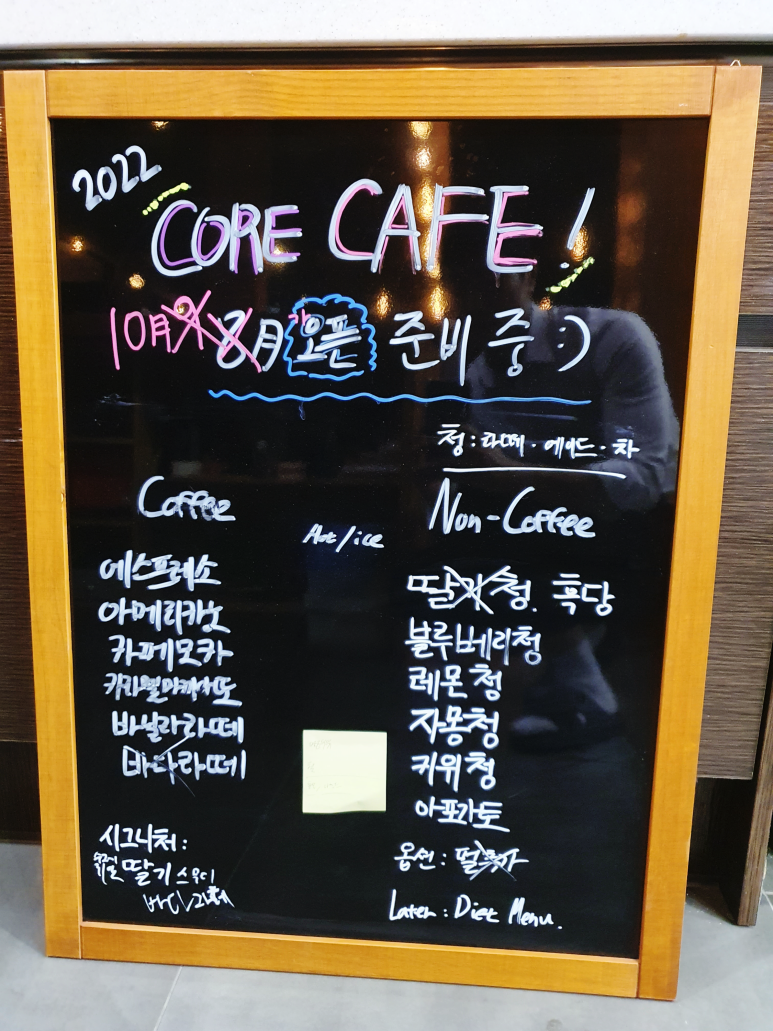 2022
CORE CAFE!
10月 8月 오픈 준비 중 :)
청 : 라떼 · 에이드 · 차
Coffee
Hot/ice
에스프레소
아메리카노
카페모카
카라멜마끼아또
바닐라라떼
바나나라떼
시그니처 :
딸기 스무디
Non-Coffee
딸기청. 흑당
블루베리청
레몬청
자몽청
키위청
아포가토
옵션 :
Later : Diet Menu.